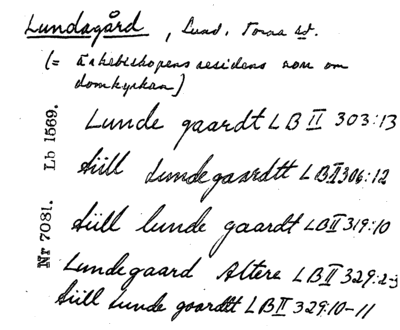 Lundagård, Lund, Torna hd.
(= ärkebiskopens residens norr om
domkyrkan)
Lunde gaardt LB II 303:13
tiill Lundegaardtt LB II 306:12
tiill lunde gaardt LB II 319:10
Lundegaard Altere LB II 329:2-3
tiill Lunde goordtt LB II 329:10-11
Nr 7081. Lb 1569.